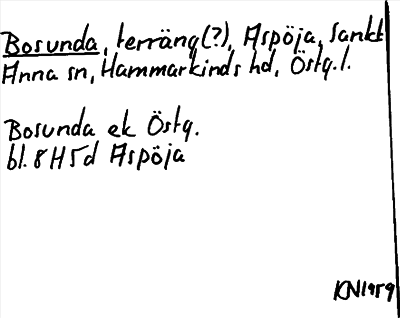 Bosunda, terräng(?), Aspöja, Sankt
Anna sn, Hammarkinds hd, Östg.l.
Bosunda ek Östg.
bl. 8 H 5d Aspöja
KN 1959